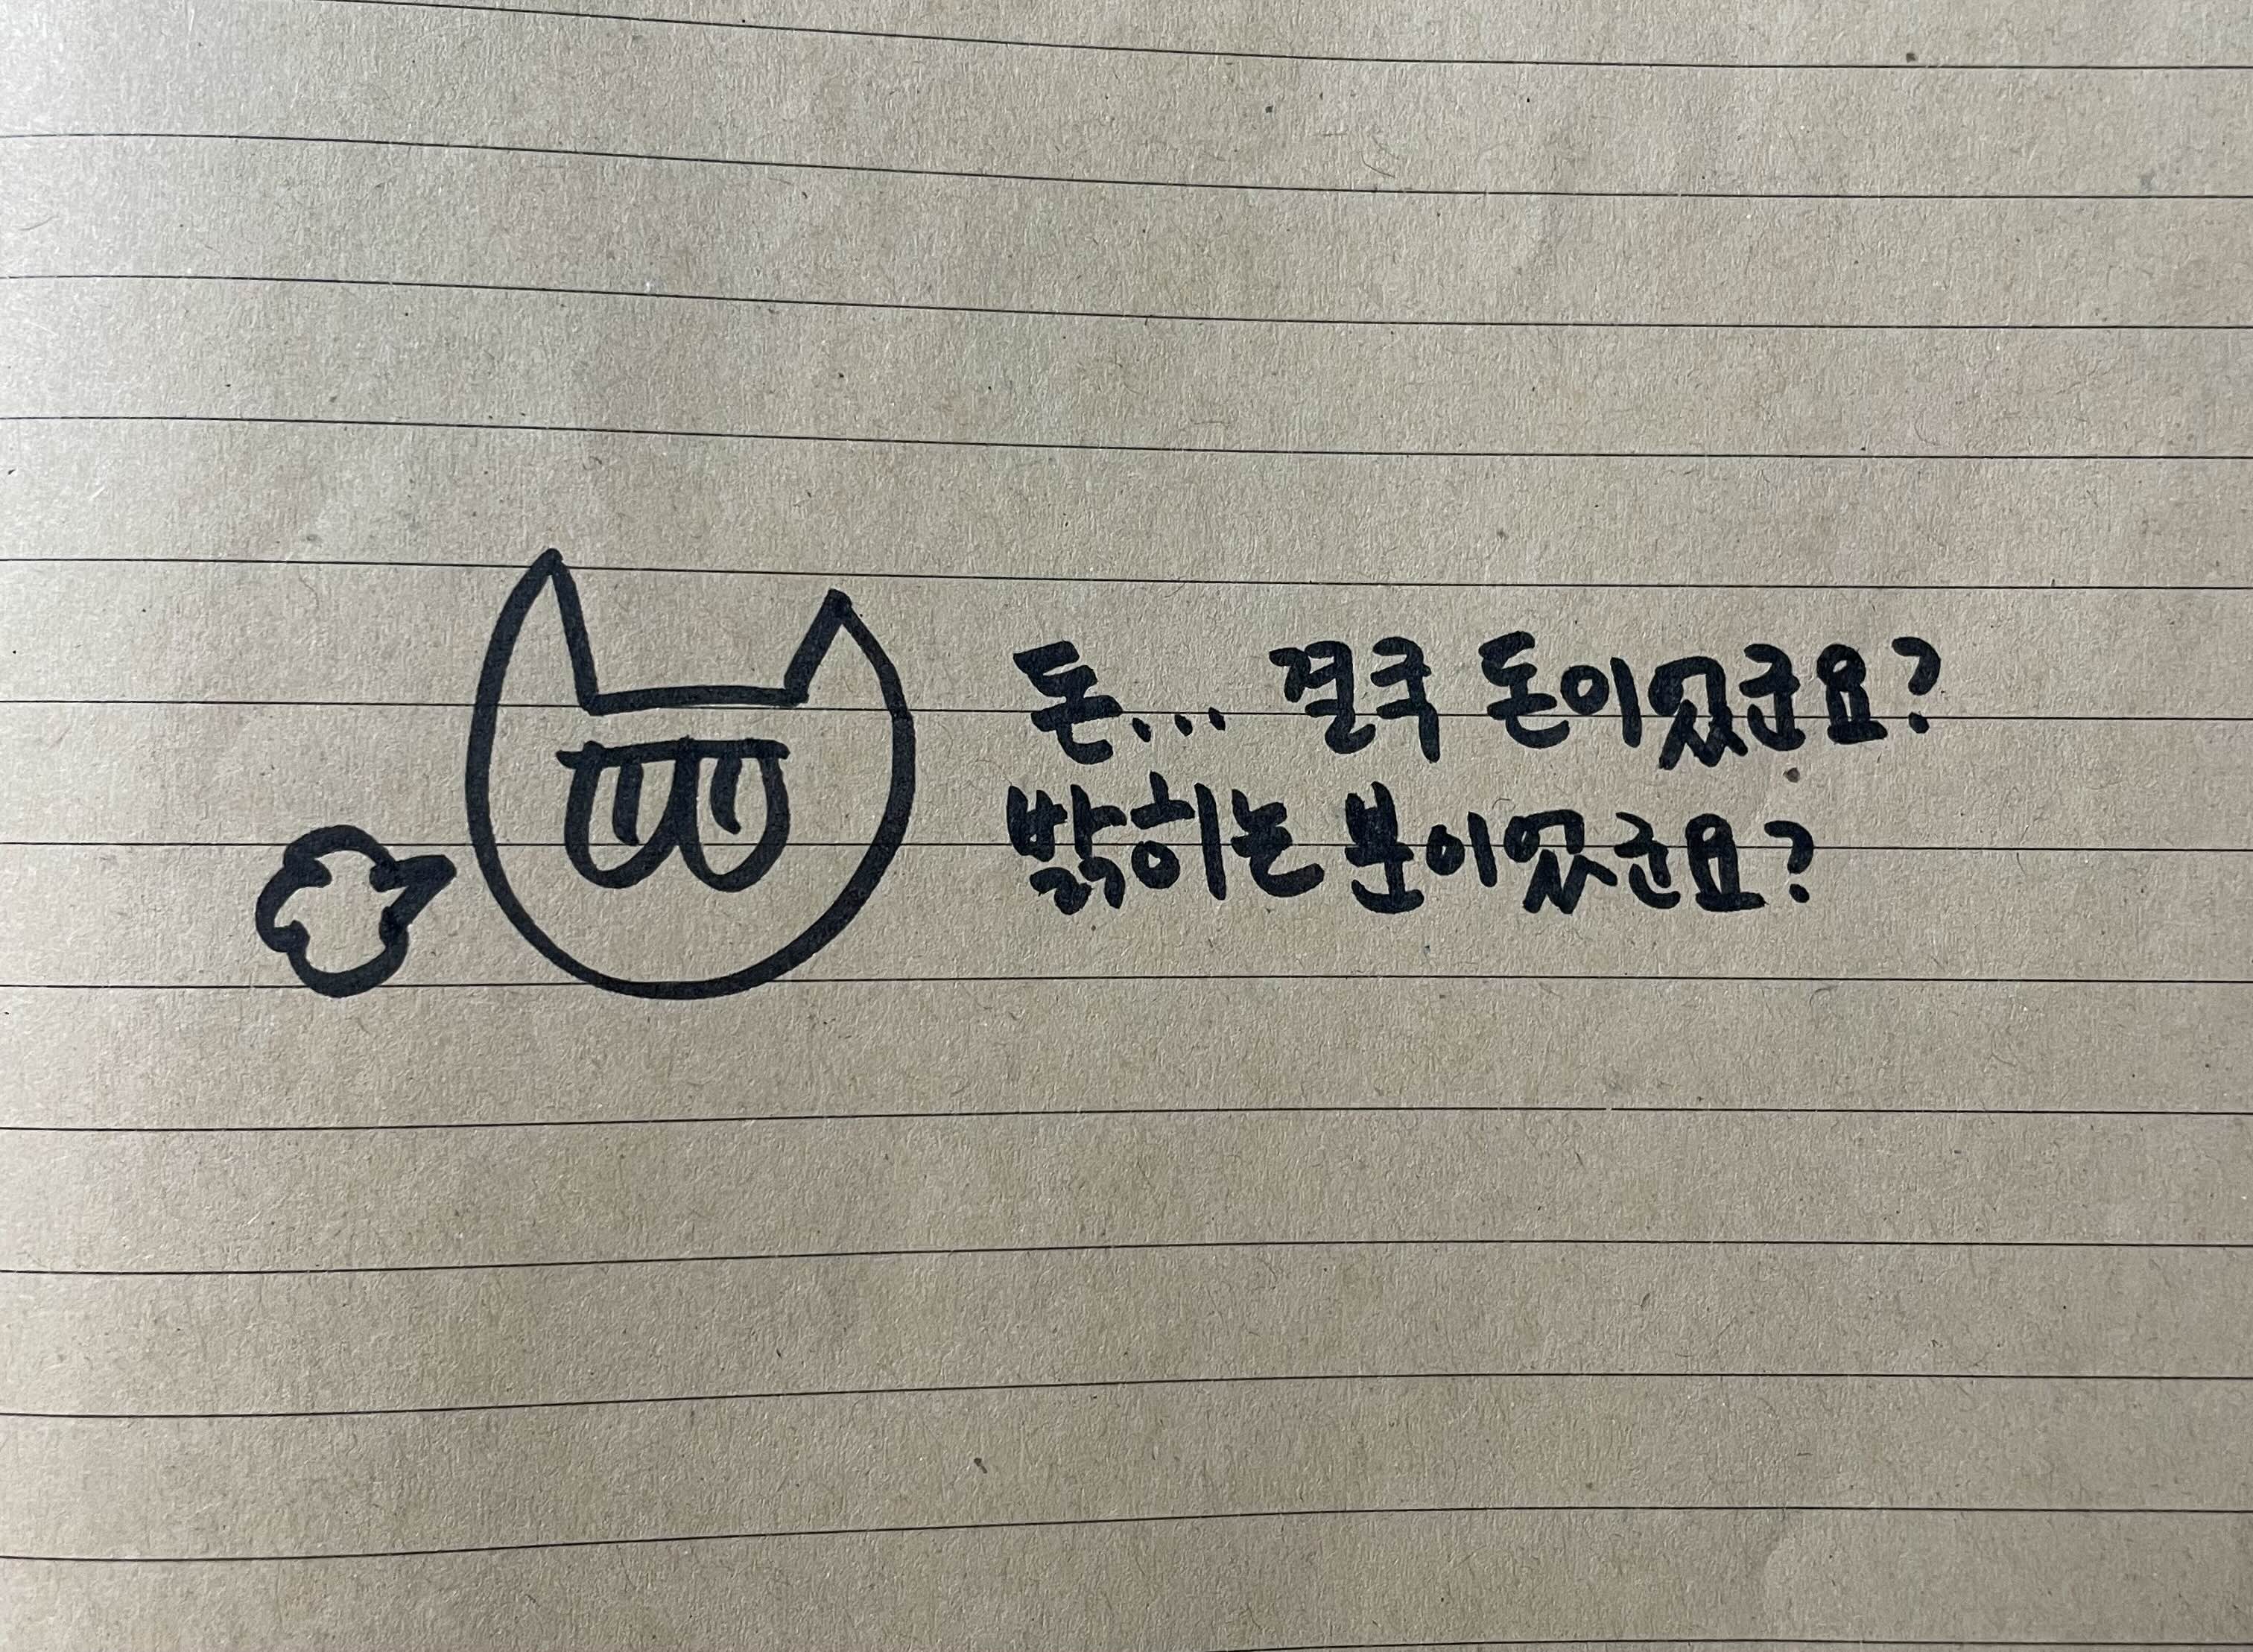 돈... 결국 돈이었군요?
밝히는 분이였군요?